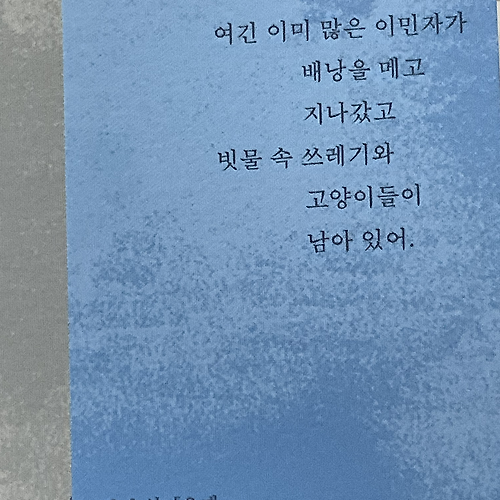 여긴 이미 많은 이민자가
배낭을 메고
지나갔고
빗물 속 쓰레기와
고양이들이
남아 있어.